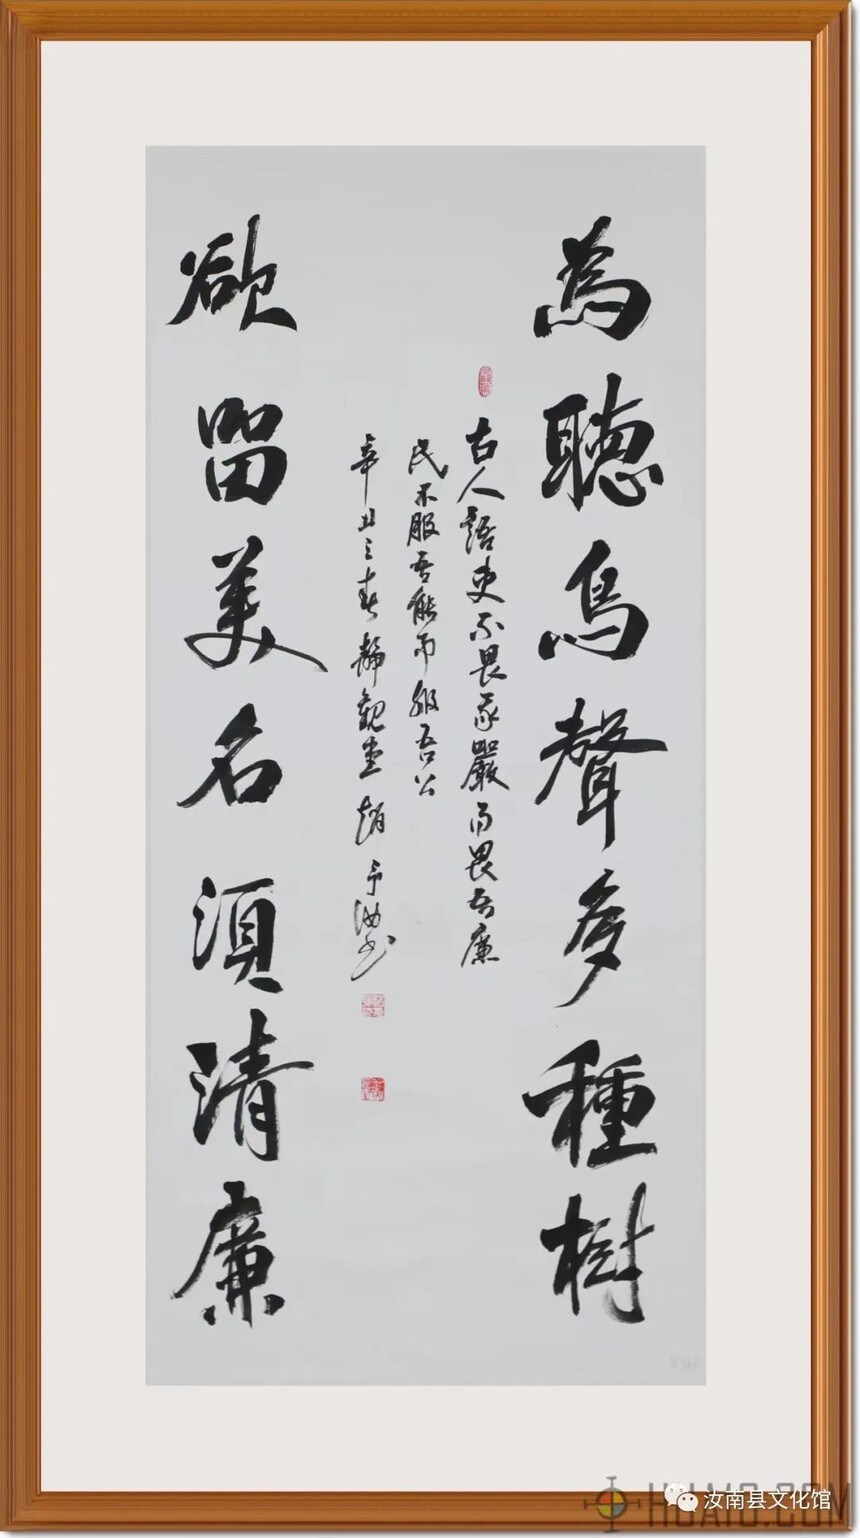 為聽鳥聲多種樹
古人語吏不畏吾嚴而畏吾廉
民不服吾能而服吾公
辛丑之春靜觀堂趙予汝书
欲留美名須清廉
汝南县文化馆
HUAIO.COM